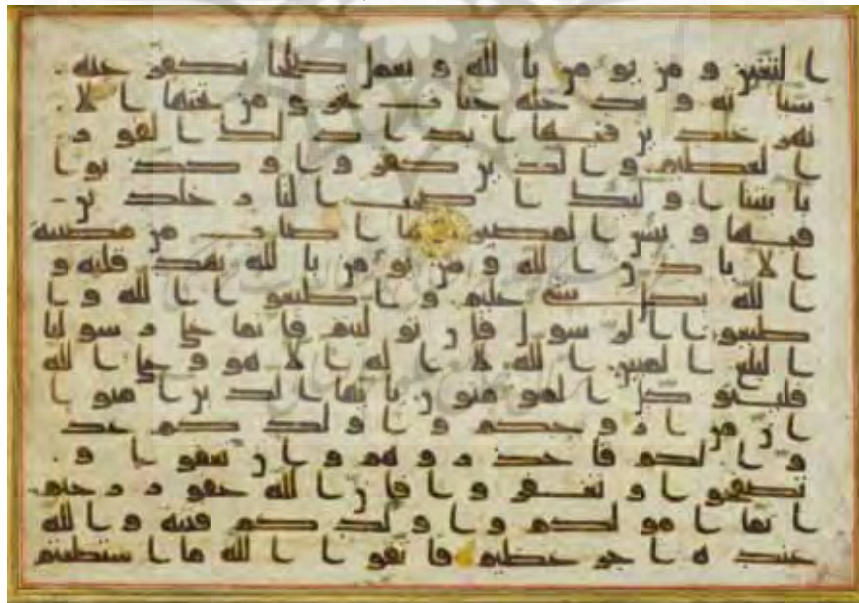 التغبن ومن يؤمن بالله ويعمل صلحا يكفر عنه
سياته ويدخله جنات تجرى من تحتها الا
نهر خلدين فيها ابدا ذلك الفوز
العظيم والذين كفروا وكذبوا
بايتنا اولئك اصحب النار خلدين
فيها وبئس المصير ما اصاب من مصيبة
الا باذن الله ومن يؤمن بالله يهد قلبه و
الله بكل شىء عليم واطيعوا الله وا
طيعوا الرسول فان توليتم فانما على رسولنا
البلغ المبين الله لا اله الا هو وعلى الله
فليتوكل المؤمنون يايها الذين امنوا
ان من ازوجكم واولدكم عد
وا لكم فاحذروهم وان تعفوا و
تصفحوا وتغفروا فان الله غفور رحيم
انما امولكم واولدكم فتنة والله
عنده اجر عظيم فاتقوا الله ما استطعتم